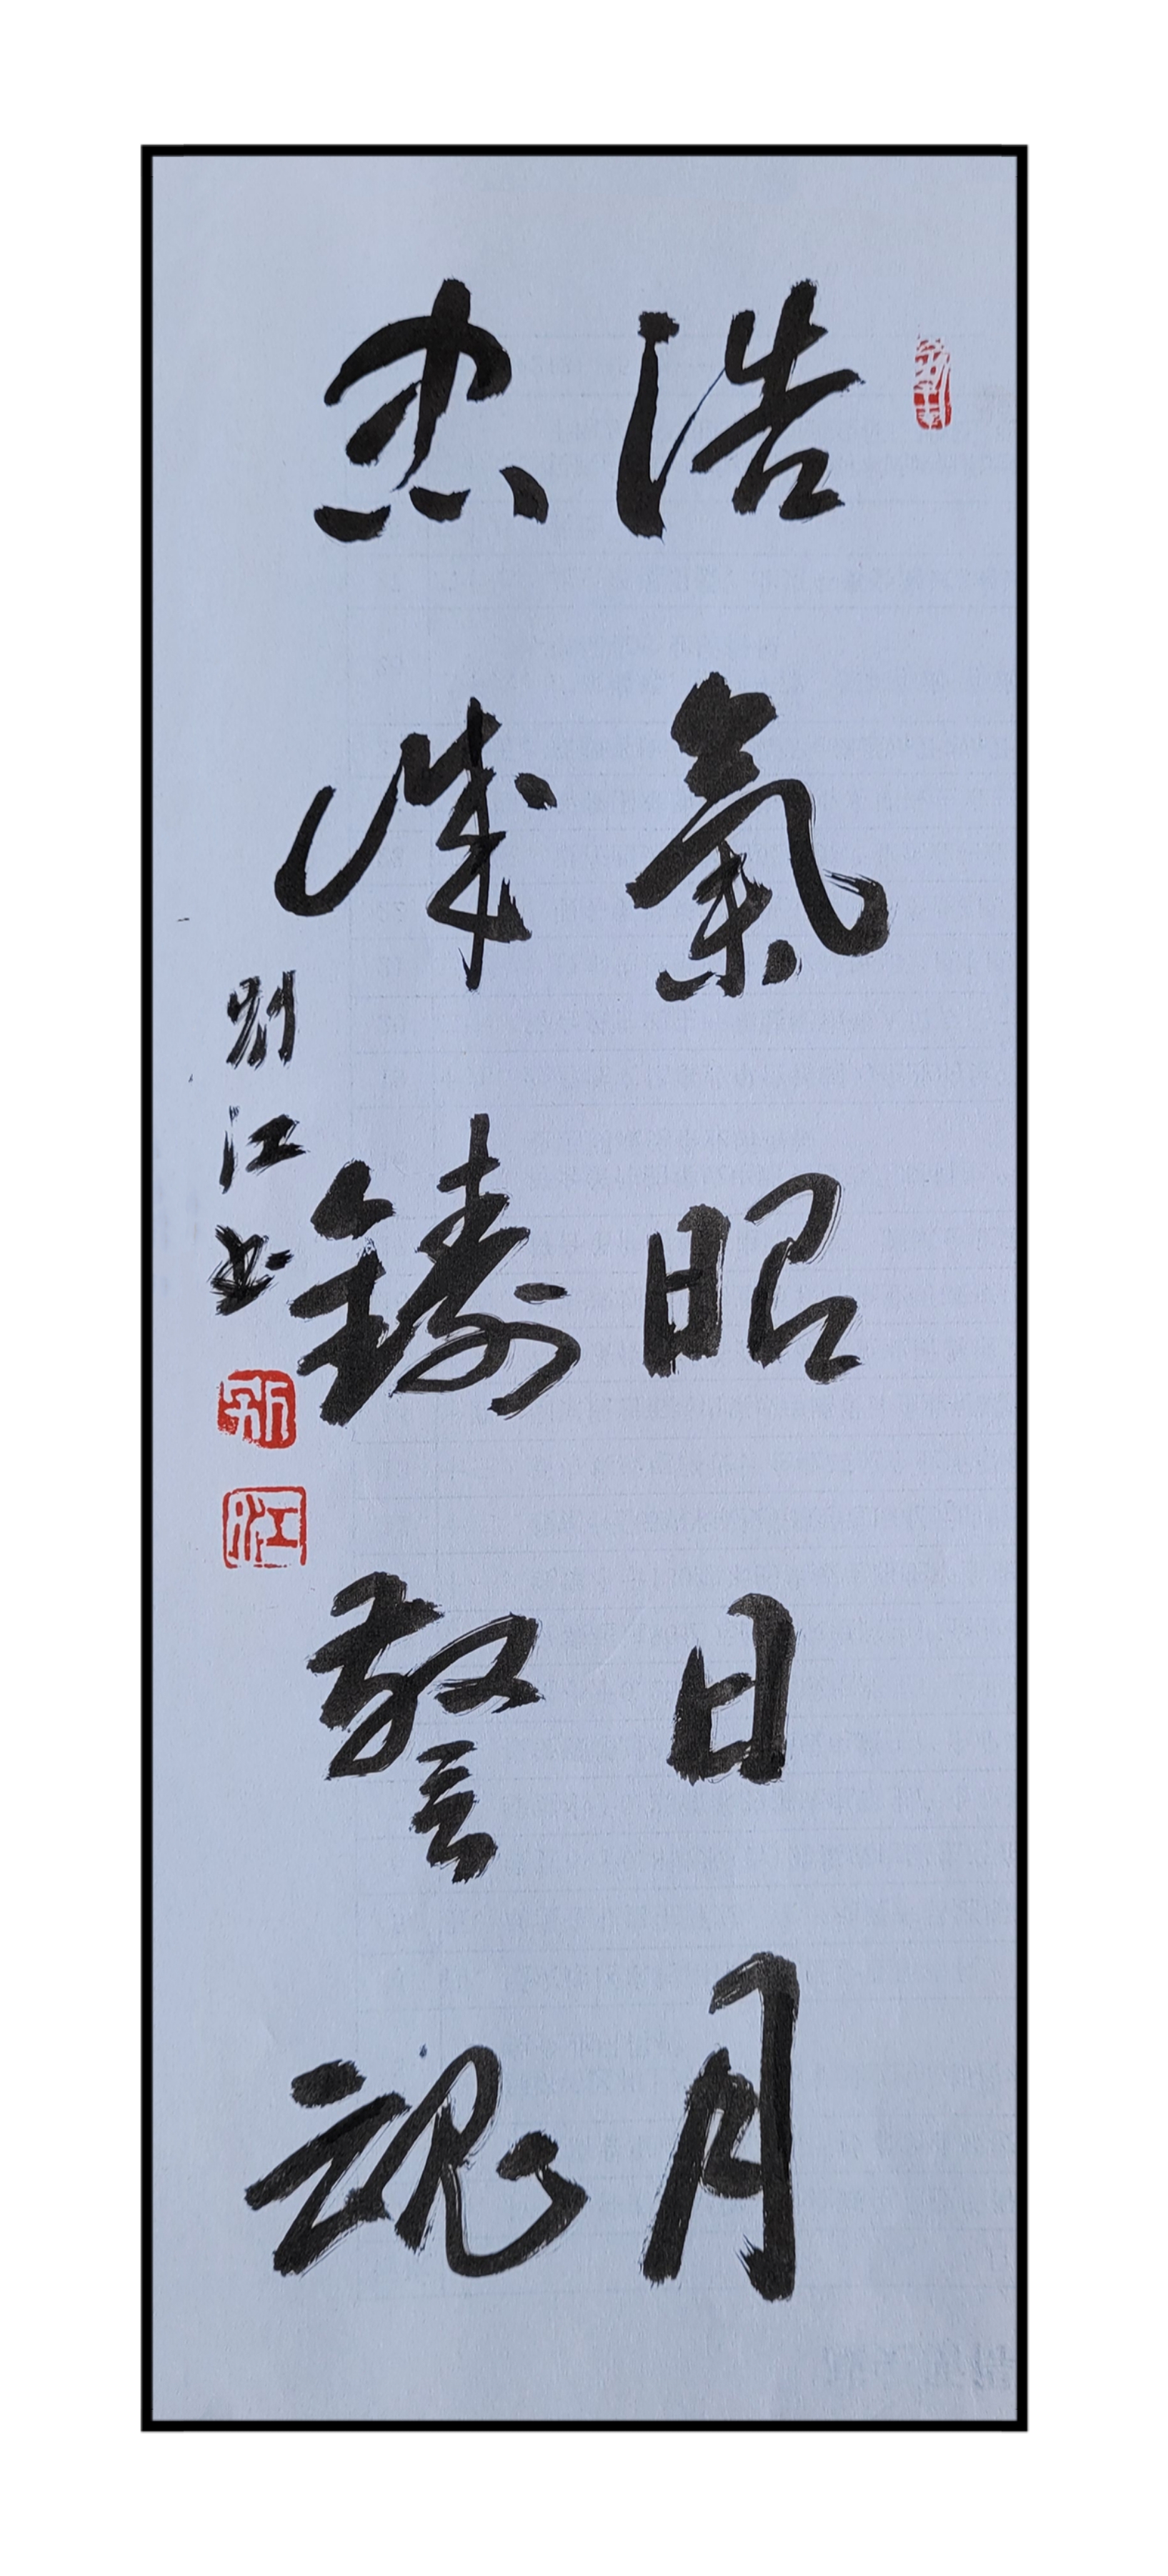 浩氣昭日月
忠诚鑄警魂
江书
江